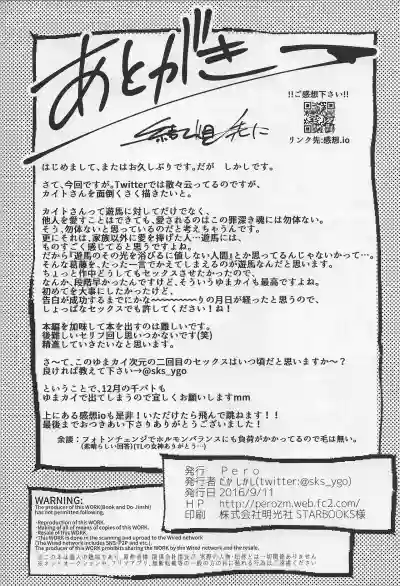 あとがき
!!ご感想下さい!!
リンク先:感想.io
はじめまして、またはお久しぶりです。だが しかしです。
さて、今回ですが。Twitterでは散々云ってるのですが、
カイトさんを面倒くさく描きたいと。
カイトさんって遊馬に対してだけでなく、
他人を愛すことはできても、愛されるのはこの罪深き魂には勿体ない。
そう、勿体ないと思っているのだと考えちゃうんです。
更にそれは、家族以外に愛を捧げた人…遊馬には、
ものすごく感じてると思うですよね。
だから『遊馬のその光を浴びるに値しない人間』とか思ってるんじゃないかって…
そんな葛藤を、たった一言でかえてしまえるのが遊馬なんだと思います。
ちょっと作中どうしてもセックスさせたかったので、
なんか、段階早かったんですけど、そういうゆまカイも最高ですよね。
初めてを大事にしたかったけど、
告白が成功するまでにかな〜〜〜〜〜りの月日が経ったと思うので、
しょっぱなセックスでも許してくださいね!
本編を加味して本を出すのは難しいです。
後難しいセリフ回し思いつかないです(笑)
精進していきたいなと思います。
さ〜て、このゆまカイ次元の二回目のセックスはいつ頃だと思いますか〜?
良ければ教えて下さい→@sks_ygo
ということで、12月の千バトも
ゆまカイで出てしまうので宜しくお願いしますmm
上にある感想ioも是非!いただけたら飛んで跳ねます!!
最後までおつきあい下さりありがとうございました!
余談:フォトンチェンジでホルモンバランスにも負荷がかかってるので毛は無い。
(素晴らしい回答)(TLの女神ありがとう…)
発行 Pero
発行者 だがしかし(twitter:@sks_ygo)
発行日 2016/9/11
HP http://perozm.web.fc2.com/
印刷 株式会社明光社 STARBOOKS様
WARNING:
The producer of this WORK(Book and Do Jinshi)
has not permitted following.
・Reproduction of this WORK.
・Making all of means of copies of this WORK.
・Resale of this WORK.
・This WORK is done in the scanning and spread to the Wired network
(The Wired network includes SNS/P2P and etc.).
The producer of this WORK prohibits sharing the WORK by the Wired network and the resale.